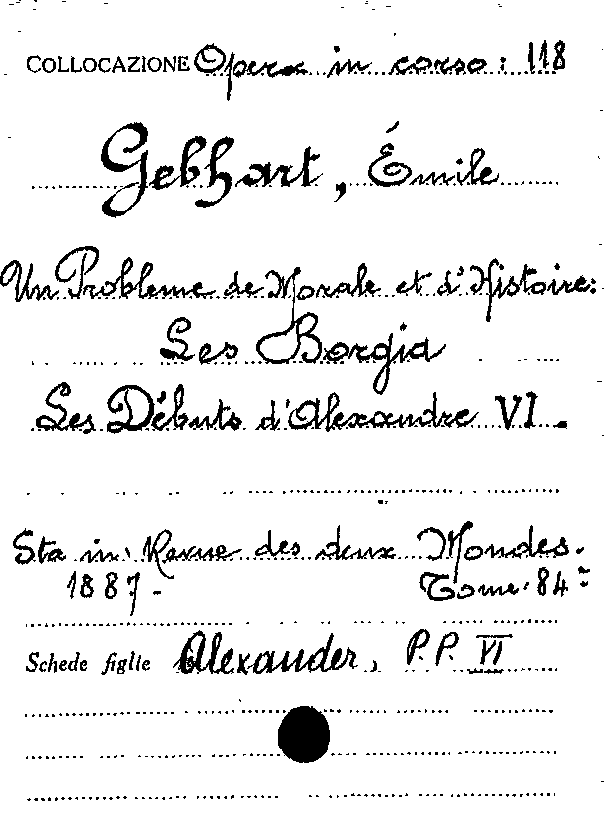 COLLOCAZIONE Opera in corso: 118
Gebhart, Émile
Un Problème de Morale et d'Histoire:
Les Borgia
Les Débuts d'Alexandre VI.
Sta in: Revue des deux Mondes.
1887- Tome 84
Schede figlie Alexander, P.P. VI